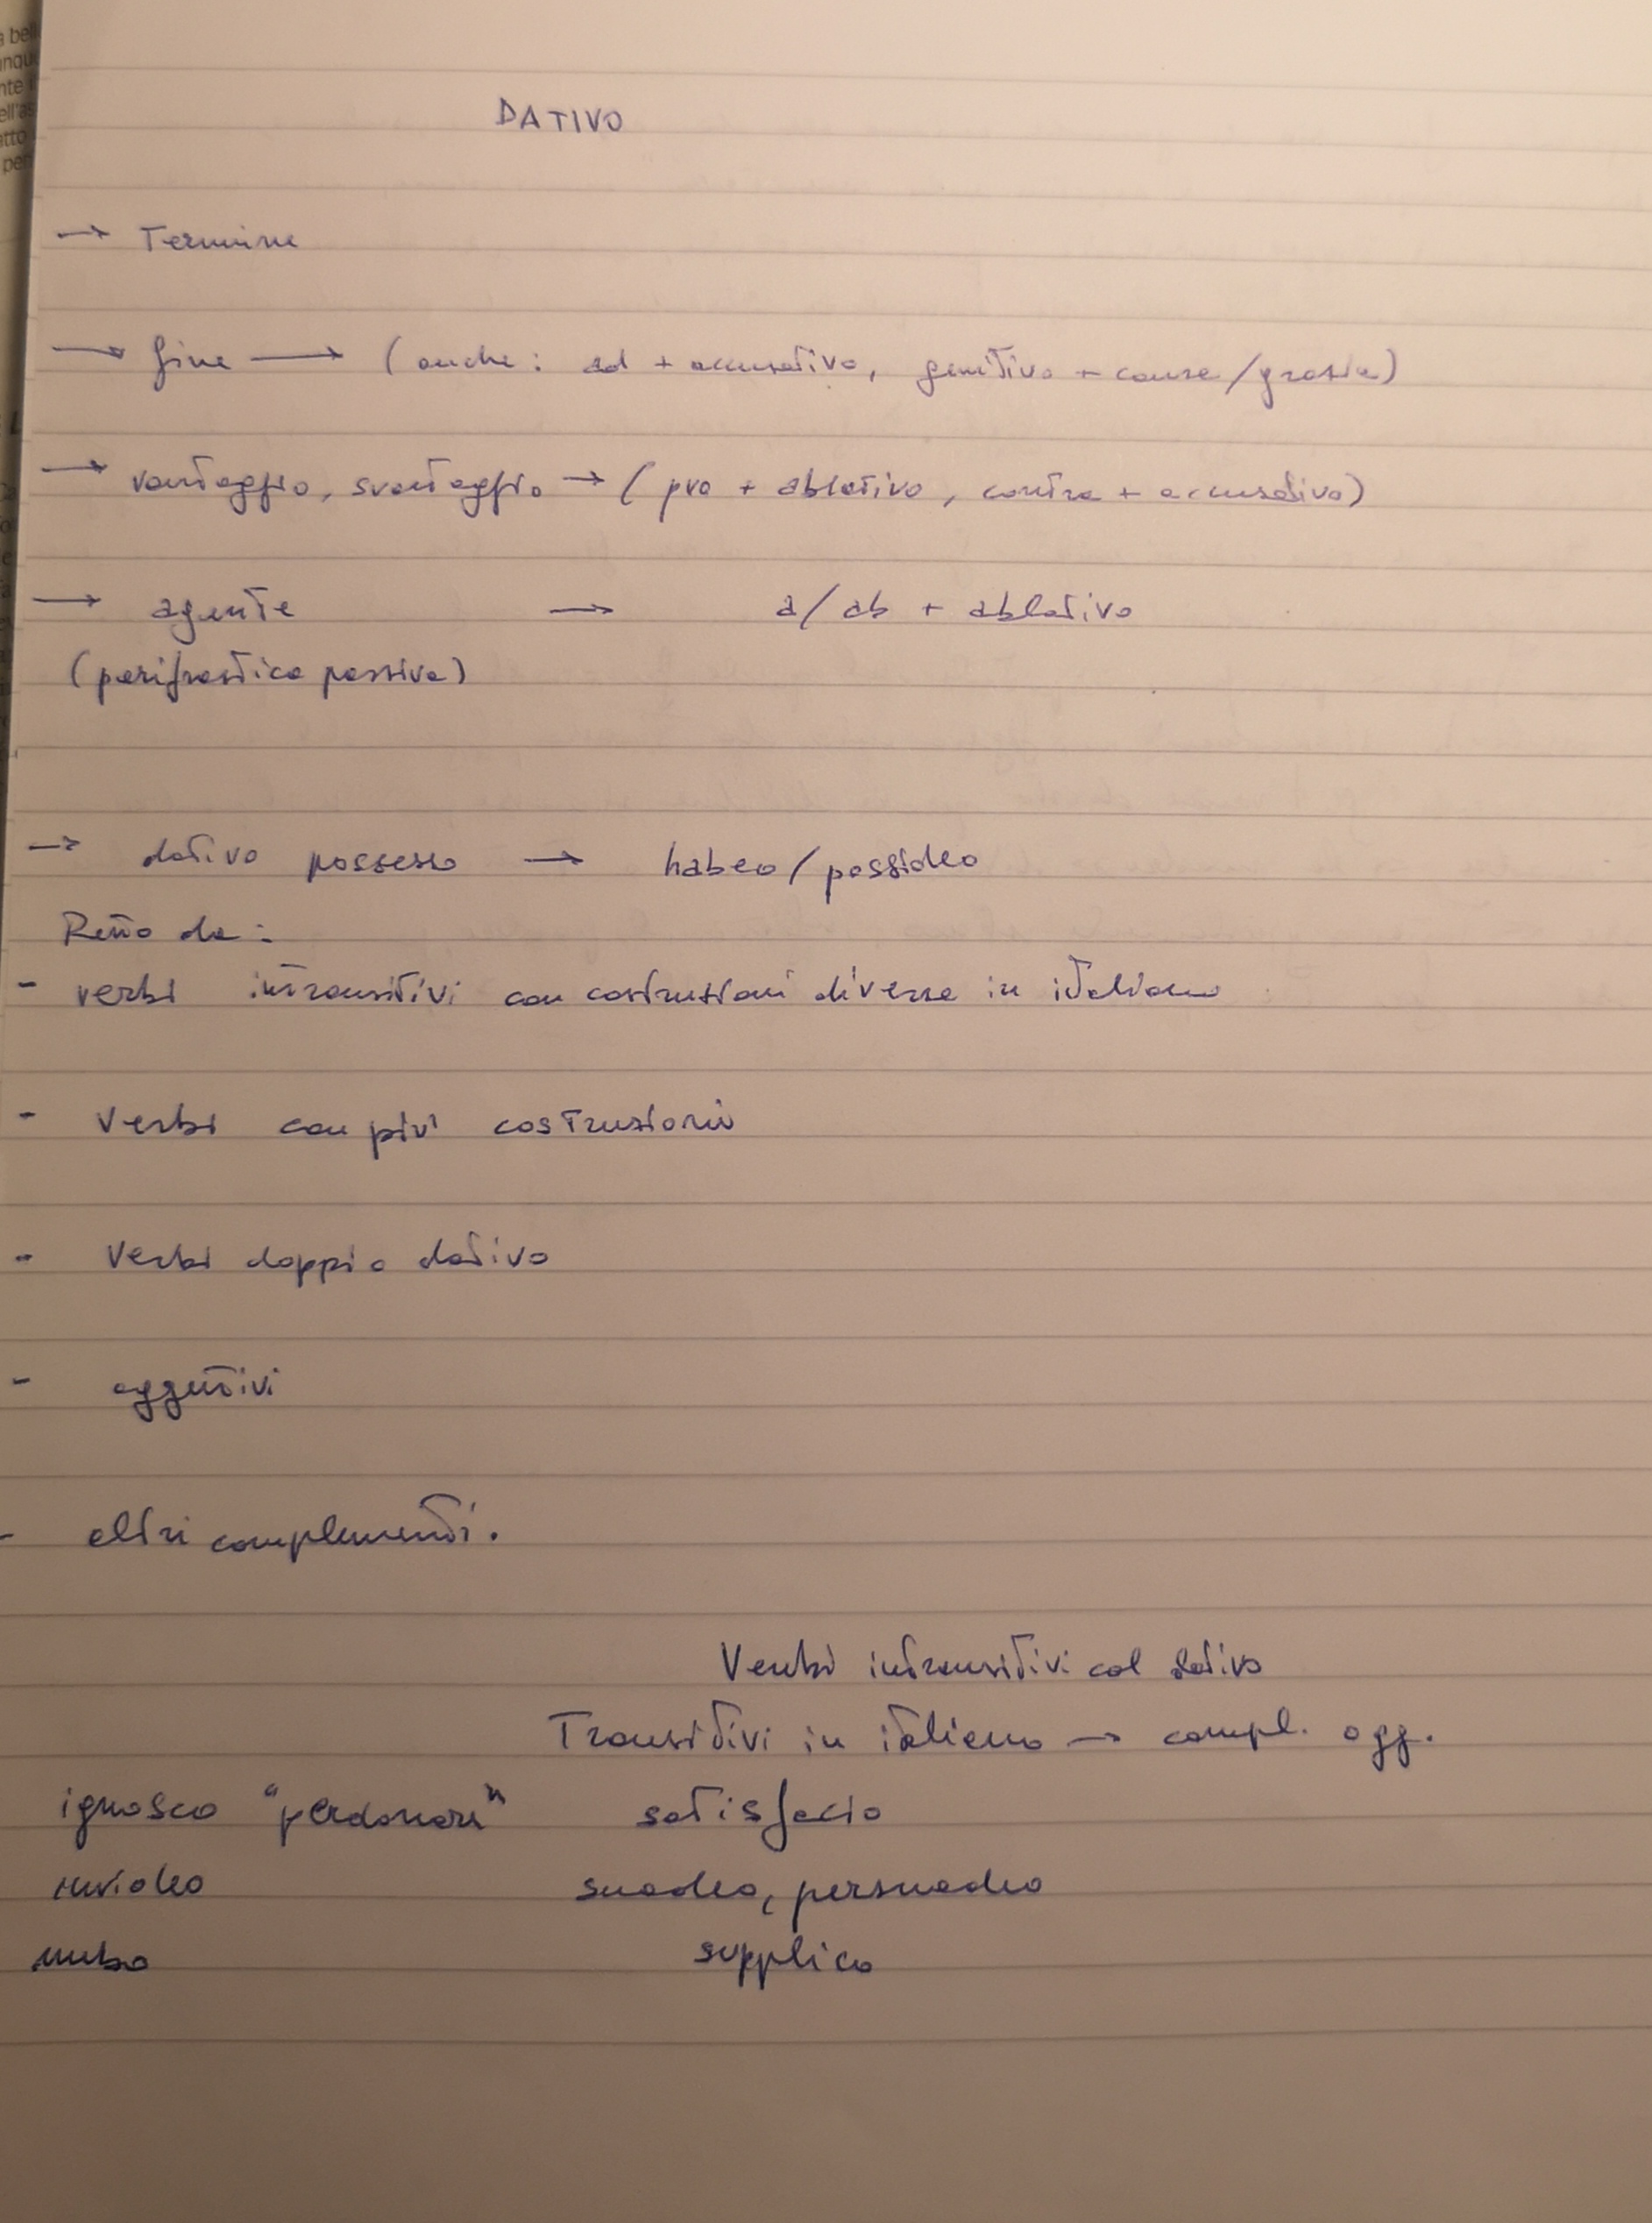 DATIVO
→ Termine
→ fine → (anche: ad + accusativo, genitivo + causa/gratia)
→ vantaggio, svantaggio → (pro + ablativo, contra + accusativo)
→ agente → a/ab + ablativo
(perifrastica passiva)
→ dativo possesso → habeo/possideo
Retto da:
- verbi intransitivi con costruzioni diverse in italiano
- Verbi con più costruzioni
- Verbi doppio dativo
- aggettivi
- altri complementi.
Verbi intransitivi col dativo
Transitivi in italiano → compl. ogg.
ignosco "perdonare" satisfacio
invideo suadeo, persuadeo
nubo supplico